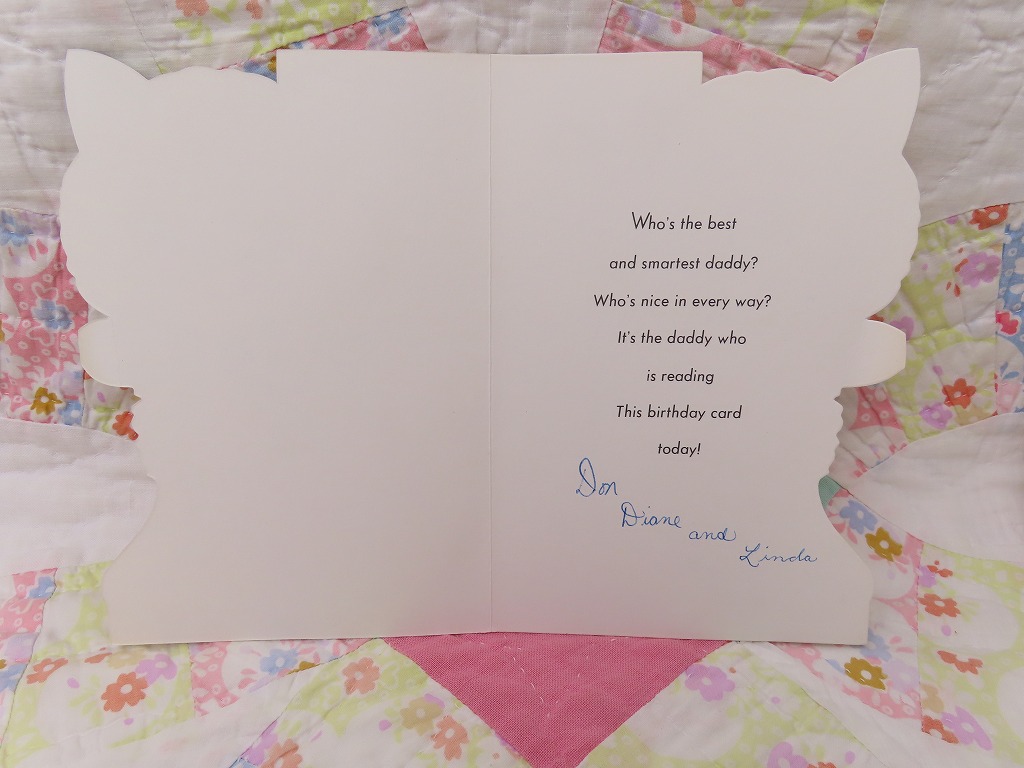 Who's the best
and smartest daddy?
Who's nice in every way?
It's the daddy who
is reading
This birthday card
today!
Don
Diane and
Linda